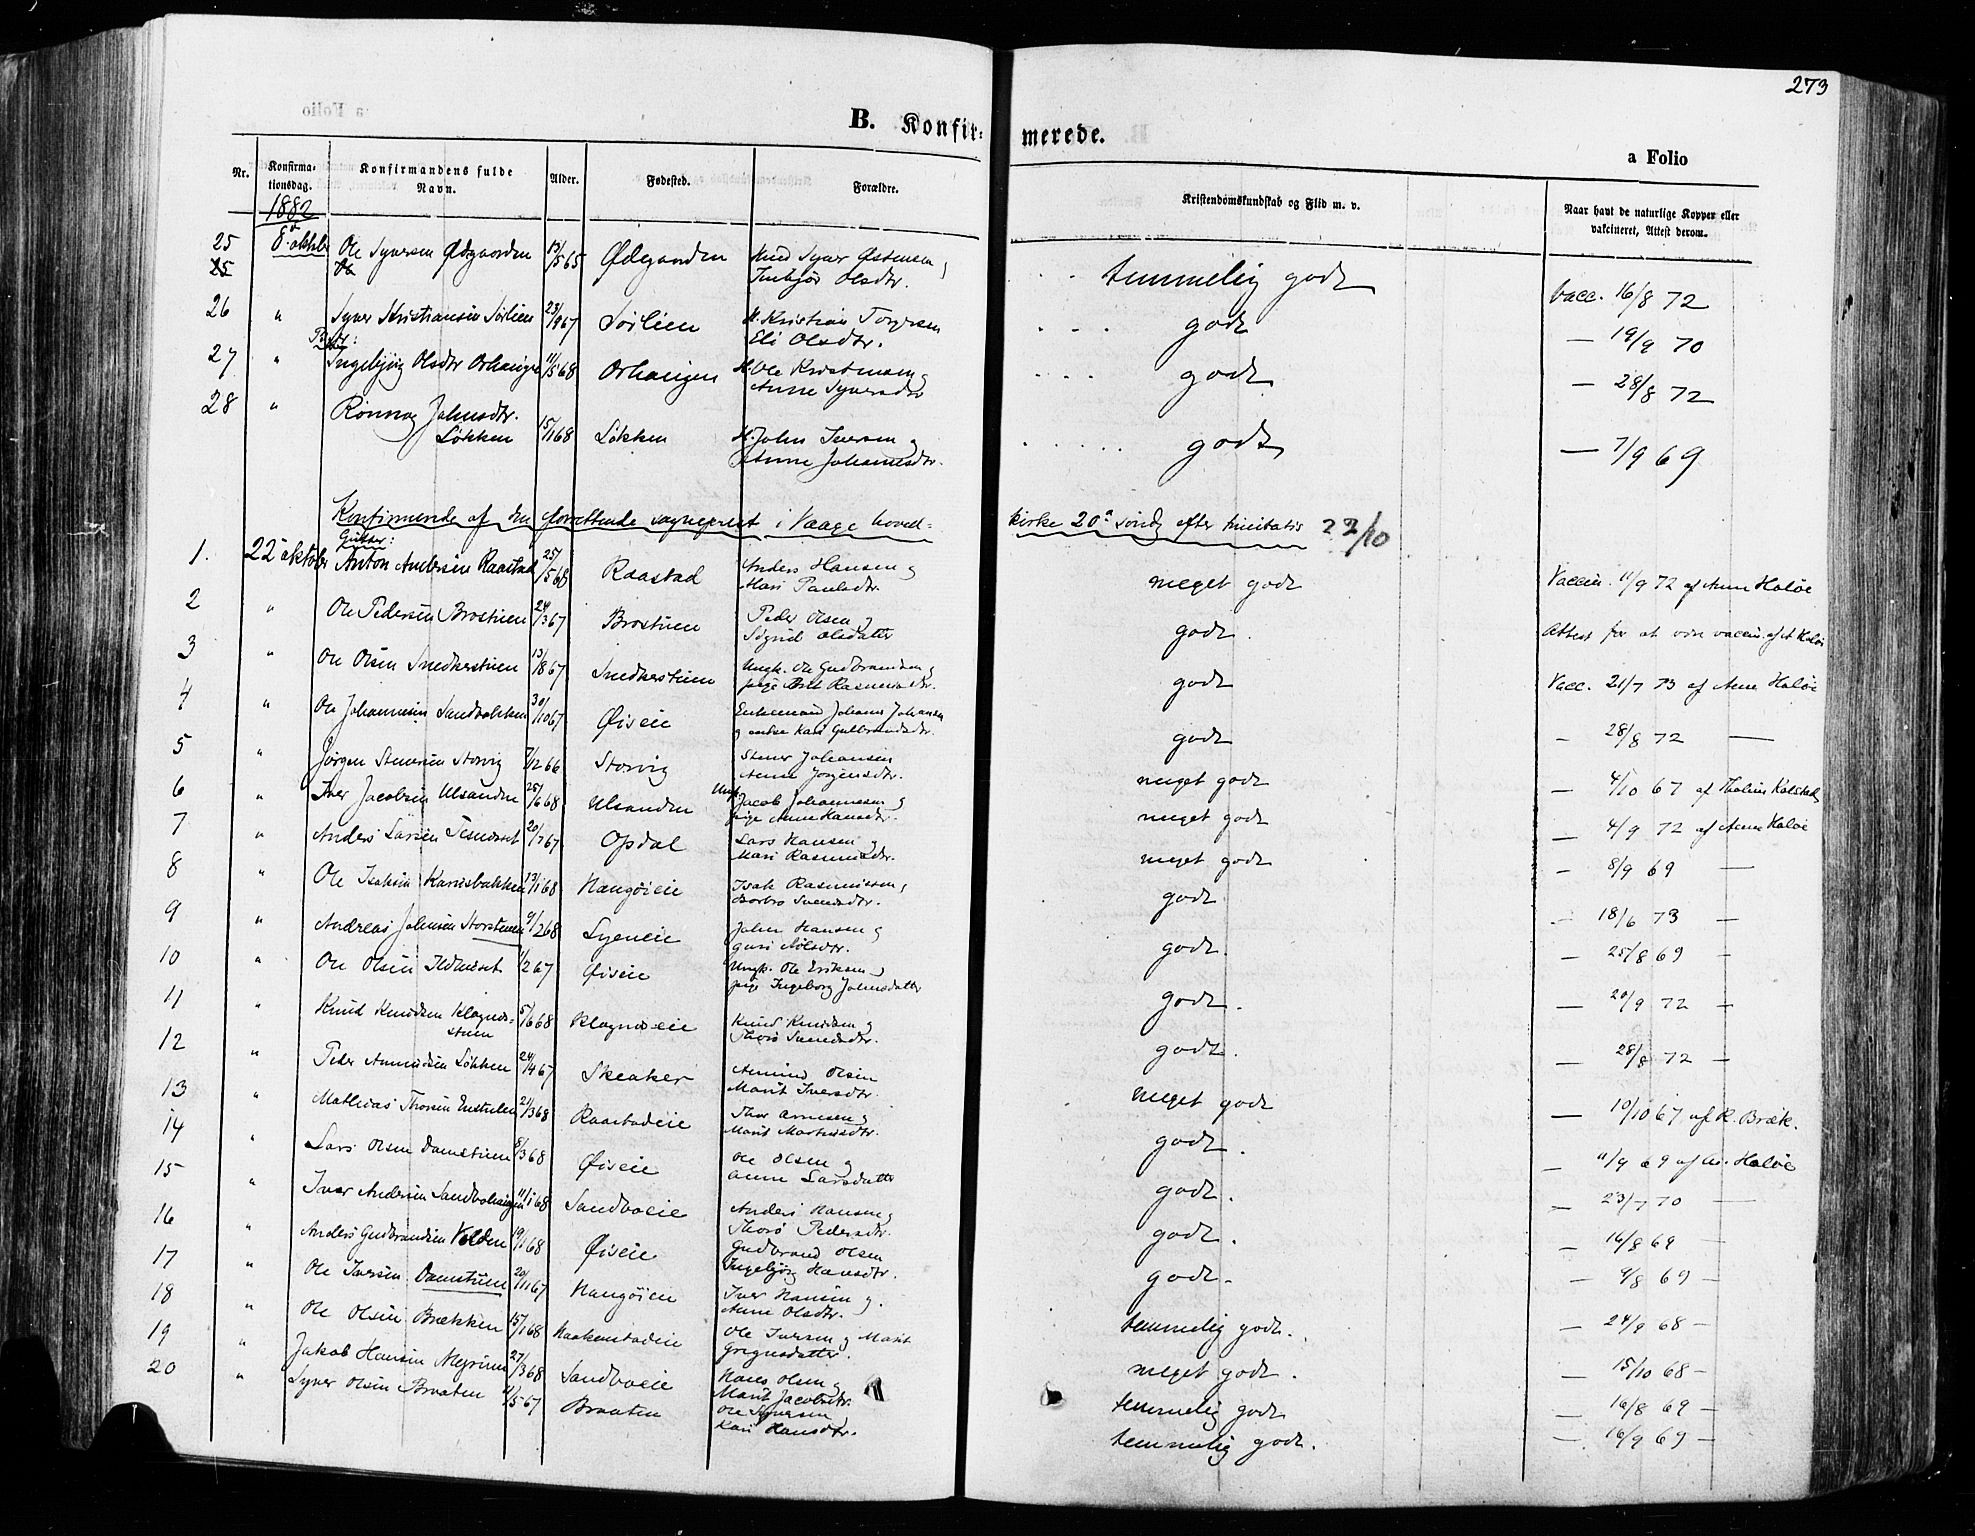 273
B. Konfirmerede.
a Folio
Nr.
Konfirmationsdag.
Konfirmandens fulde Navn.
Alder.
Fødested.
Forældre.
Kristendomskundskab og Flid m. v.
Naar havt de naturlige Kopper eller vakcineret, Attest derom.
1882
25 8de oktbr Ole Syversen Ødegaarden 13/5 65 Ødegaarden Syver Østensen Olsdtr. temmelig godt vacc. 16/8 72
26 " Syver Kristiansen Sørlien 23/9 67 Sørlien Kristian Eli Olsdtr. godt — 19/9 70
27 " Ingebjørg Olsdtr 11/5 68 Ole Anne Syversdtr godt — 28/8 72
28 " Rønnog Johnsdtr. Løkken 15/1 68 Løkken John Iversen og Anne Johannesdtr. godt — 7/9 69
Konfirmerede af den forrettende sogneprest i Vaage hoved-
kirke 20de sønd. efter trinitatis 22/10
Gutter:
1. 22 oktober Anton Andersen Raastad 25/5 68 Raastad Anders Hansen og Mari Paulsdtr. meget godt Vaccin. 11/9 72 af Anne Haløe
2 " Ole Pedersen Brostuen 24/3 67 Brostuen Peder Olsen og Sigrid Olsdatter godt. Attest for at vaccin. af A Haløe
3 " Ole Olsen Snedkerstuen 13/8 67 Snedkerstuen Ungk. Ole Gudbrandsen og pige Brit Rasmusdtr. godt Vacc. 21/7 73 af Anne Haløe
4 " Ole Johannesen Sandbakken 30/10 67 Øiseie Enkemand Johannes Johansen og enke Kari Gulbrandsdtr. godt — 28/8 72 —
5 " Jørgen Stenersen Storvig 7/12 66 Storvig Stener Johansen Anne Jørgensdtr. meget godt — 4/10 67 af Kolstad
6 " Iver Jacobsen Ulsanden 25/6 68 Ulsanden Ungk. Jacob Johannesen og pige Anne Hansdtr. meget godt — 4/9 72 af Anne Haløe
7 " Anders Larsen 20/7 67 Opdal Lars Hansen og Mari Rasmusdtr. meget godt — 8/9 69 —
8 " Ole Isaksen 13/1 68 Isak Rasmussen, Barbro Svendsdtr. godt — 18/6 73 —
9 " Andreas Johnsen Storstuen 9/2 68 John Hansen og Guri godt. — 25/8 69 —
10 " Ole Olsen 1/2 67 Øiseie Ungk. Ole Eriksen og pige Ingeborg Johnsdatter godt. — 20/9 72 —
11 " Knud Knudsen Klognesstuen 5/6 68 Klogneseie Knud Knudsen og Thorø Svendsdtr. godt. — 28/8 72 —
12 " Peder Amundsen Løkken 24/4 67 Skeaker Amund Olsen Marit Iversdtr. meget godt — 10/10 67 af K. Bræk.
13 " Mathias Thorsen 21/3 68 Raastadeie Thor Arnesen og Marit godt. — 11/9 69 af An. Haløe
14 " Lars Olsen Damstuen 8/3 68 Øiseie Ole Olsen og Anne Larsdatter godt. — 23/7 70 —
15 " Iver Andersen 11/1 68 Sandboeie Anders Hansen og Thorø Pedersdtr. godt. — 16/8 69 —
16 " Anders Gudbrandsen Volden 19/1 68 Øiseie Gudbrand Olsen Ingebjørg Hansdtr. godt. — 9/8 69 —
17 " Ole Iversen Damstuen 20/11 67 Iver Hansen og Anne Olsdtr. temmelig godt. — 24/9 68 —
18 " Ole Olsen Brækken 15/1 68 Haakenstadeie Ole Iversen og Marit meget godt. — 15/10 68 —
19 " Jakob Hansen 27/3 68 Sandboeie Hans Olsen og Marit Jacobsdtr. temmelig godt — 16/8 69 —
20 " Syver Olsen Braaten 4/5 67 Braaten Ole Syversen Kari Hansdtr. temmelig godt. — 16/9 69 —